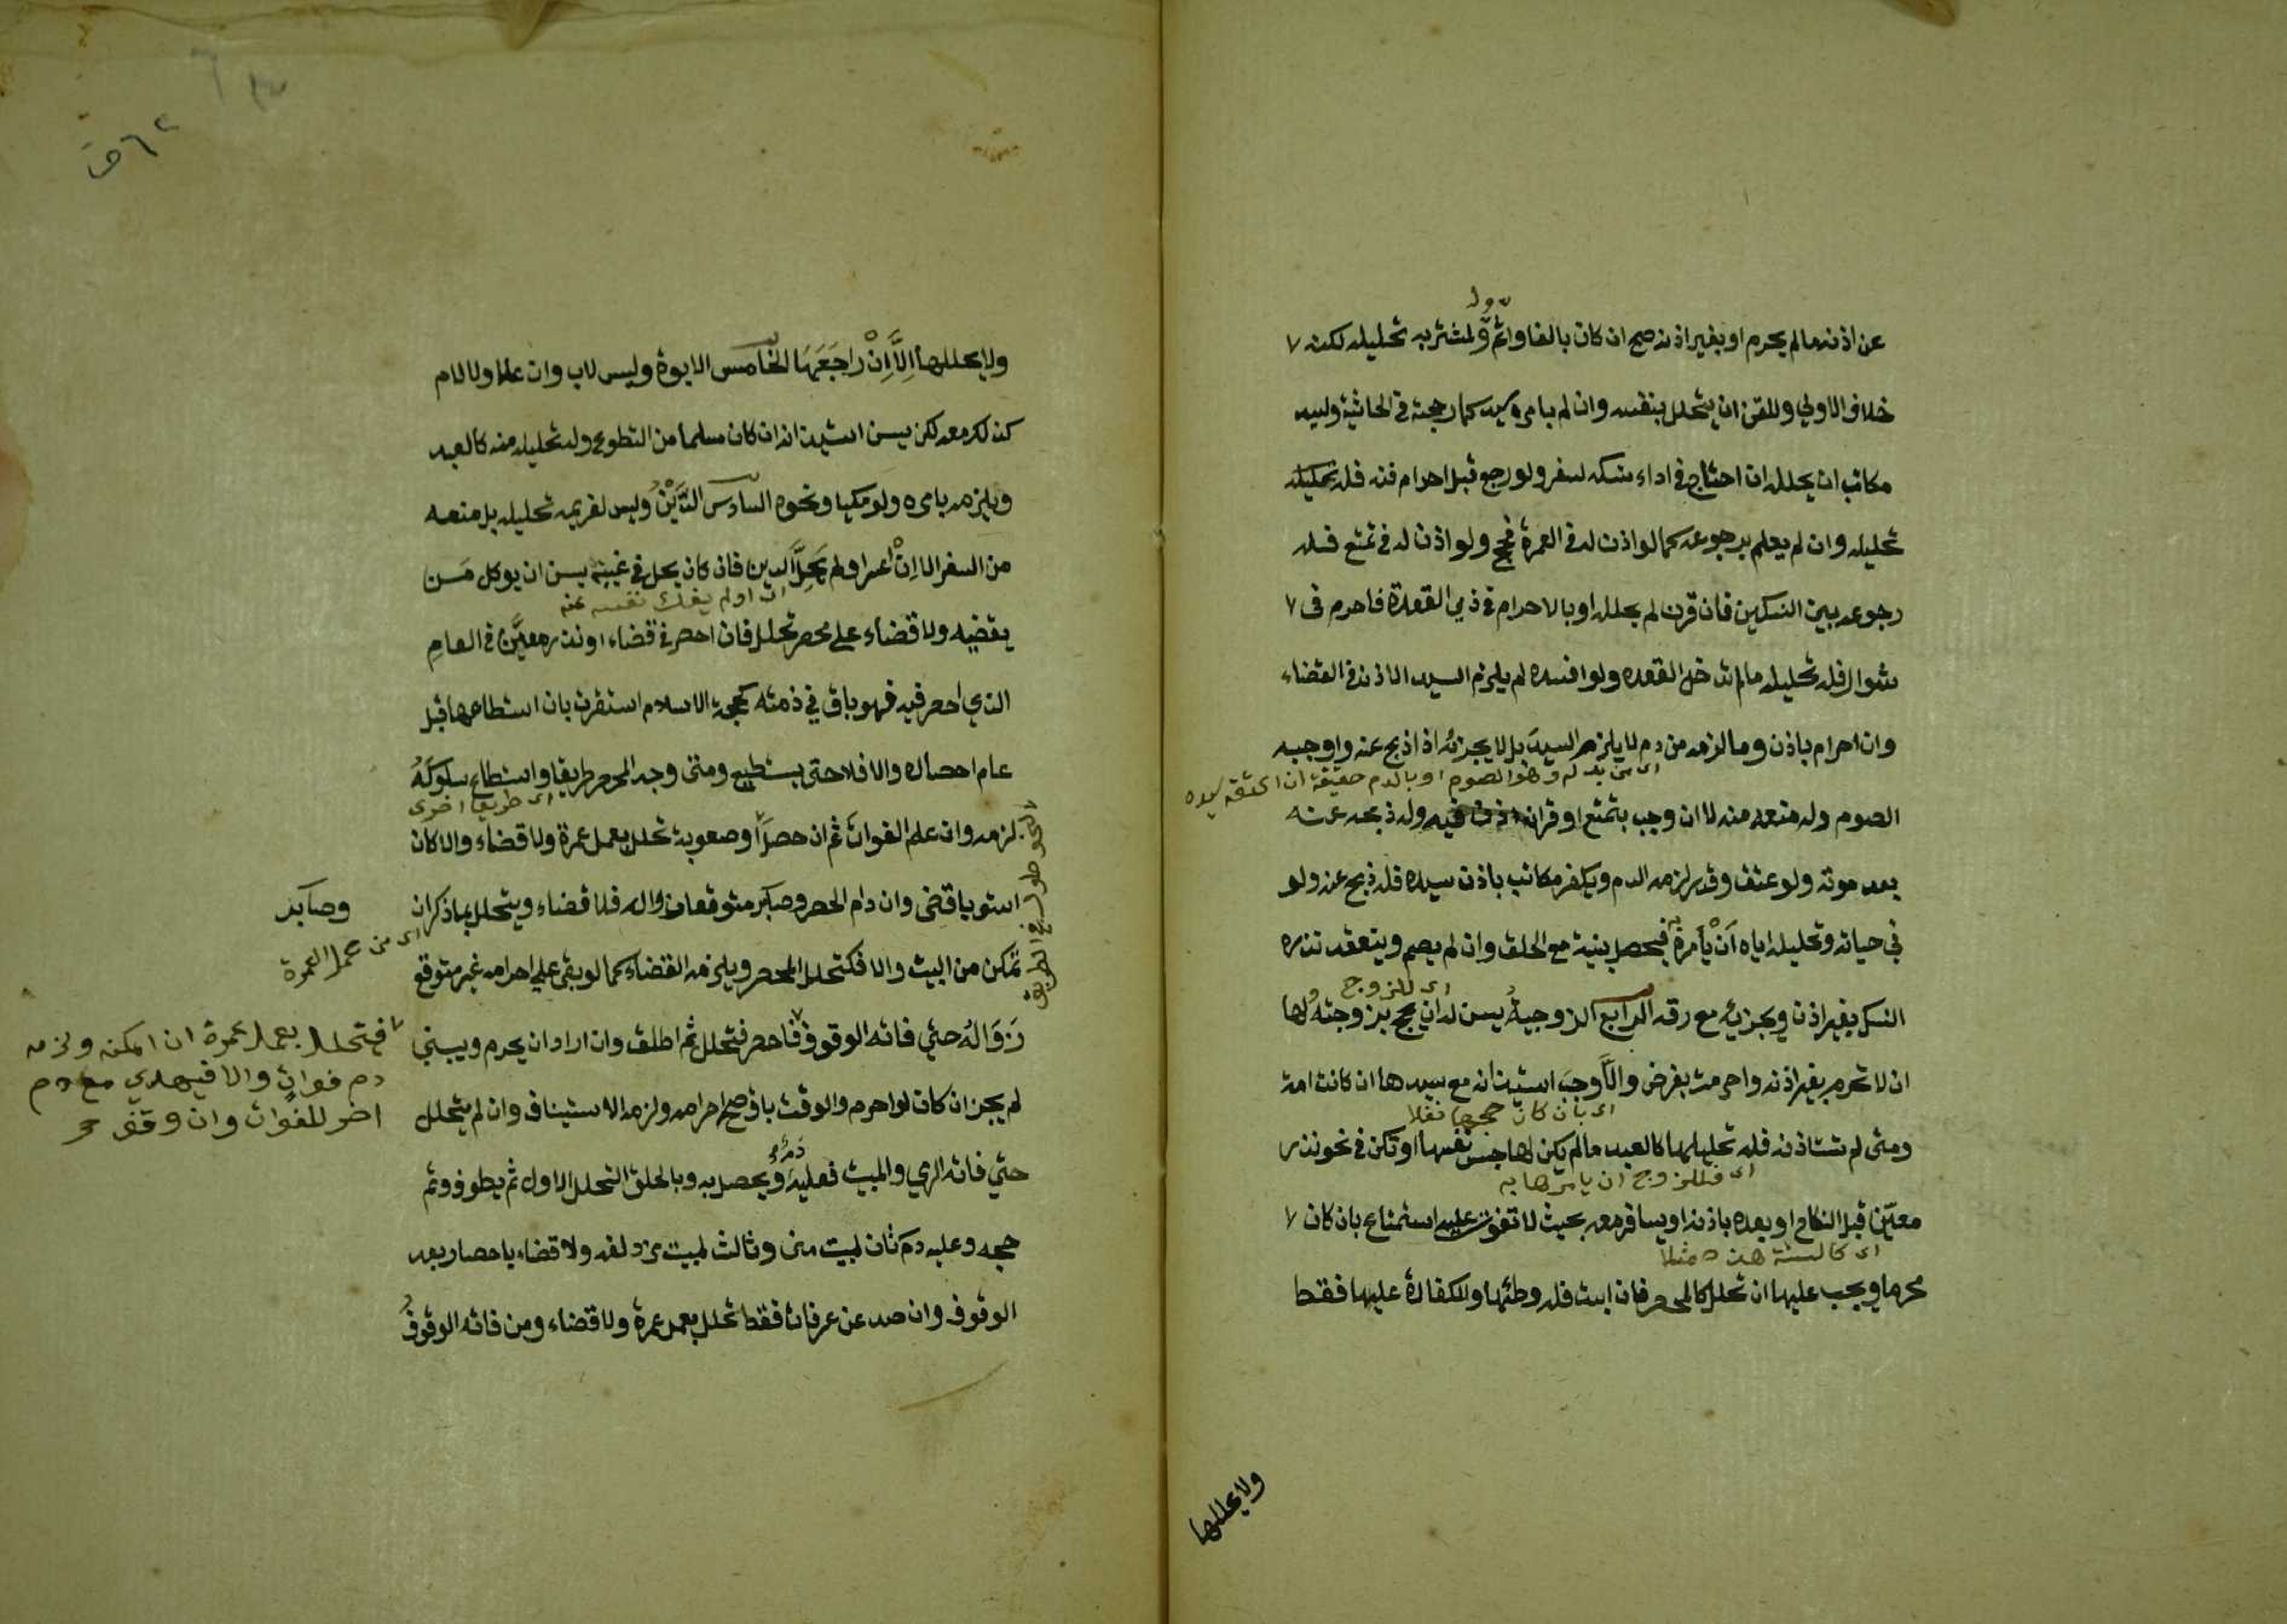 عن اذنهما لم يحرم او بغير اذنه صح ان كان بالغا واثم ولمشتريه تحليله لكنه
خلاف الاولى وللقن ان يتحلل بنفسه وان لم يامره سيده كما رجحته في الحاشية وليس
مكاتب ان يحلله ان احتاج في اداء نسكه لسفر ولو رجع قبل احرام قنه فله تحليله
تحليله وان لم يعلم برجوعه كما لو اذن له في العمرة فحج ولو اذن له في تمتع فله
رجوعه بين النسكين فان قرن لم يحلله او بالاحرام في ذي القعدة فاحرم في
شوال فله تحليله ما لم تدخل القعده ولو افسده لم يلزم السيد الاذن في القضاء
وان احرام باذن وما لزمه من دم لا يلزم السيد بل لا يجزئه اذا ذبح عنه وواجبه
اي من بدله وهو الصوم او بالدم حقيقة ان اعتقه سيده
الصوم وله منعه منه لا ان وجب بتمتع او قران اذن فيه وله ذبحه عنه
بعد موته ولو عتق وقدر لزمه الدم ويكفر مكاتب باذن سيده فله ذبح عنه ولو
في حياته وتحليله اياه أن يأمره به فيحصل بنية مع الحلق وان لم يصم وينعقد نذره
اي للزوج
النسك بغير اذن ويجزيه مع رقه الرابع الزوجية يسن له ان يحج بزوجته ولها
ان لا تحرم بغير اذنه واحرمت بفرض والا وجب استيذانه مع سيدها ان كانت امة
اي بان كان حجها نفلا
ومتى لم تستاذنه فله تحليلها كالعبد ما لم يكن لها حبس نفسها او تكن في نحو نذر
اي فللزوج ان يامرها به
معين قبل النكاح او بعده باذنه او يسافر معه بحيث لا تفوت عليه استمتاع بان كان
اي كالسنة هذه مثلا
محرما ويجب عليها ان تحلل كالمحصر فان ابت فله وطئها والكفارة عليها فقط
ولا يحللها
ولا يحللها الا إن راجعها الخامس الابوة وليس لاب وان علا ولا لام
كذلك منعه لكن يسن استيذانه ان كان مسلما من التطوع وله تحليله منه كالعبد
ويلزمه بامره ولو مكيا ونحوه السادس الدين وليس لغريمه تحليله بل منعه
من السفر الا إن اعسر او لم يحل الدين فان كان يحل في غيبته يسن ان يوكل من
ان اولم يفك نفسه عنه
يقضيه ولا قضاء على محصر تحلل فان احصر في قضاء او نذر معين في العام
الذي احصر فيه فهو باق في ذمته كحجة الاسلام استقرت بان استطاعها قبل
عام احصاره والا فلا حتى يستطيع ومتى وجد المحصر طريقا واستطاع سلوكه
اي طريقا اخرى
لزمه وان علم الفوات ثم ان حصل وصعوبة تحلل بعمل عمرة ولا قضاء والا كان
استويا قضى وان دام الحصر وصابر متوقعا زواله فلا قضاء ويتحلل بما ذكر ان
وصابر
اي من عمل العمرة
تمكن من البيت والا فكتحلل المحصر ويلزمه القضاء كما لو بقى على احرامه غير متوقع
زواله حتي فاته الوقوف فاحصر فتحلل ثم اطلق وان اراد ان يحرم ويبني
فتحلل بعمل عمرة ان امكنه ولزمه
دم فوات والا فيهدي مع دم
اخر للفوات وان وقف
لم يجز ان كان لو احرم والوقت باق صح احرامه ولزمه الاستيناف وان لم يتحلل
حتي فاته الرمي والمبيت فعليه دم ويحصل به وبالحلق التحلل الاول ثم يطوف وتم
حجه وعليه دم ثان لمبيت منى وثالث لمبيت مزدلفه ولا قضاء باحصار بعد
الوقوف وان صد عن عرفات فقط تحلل بعمل عمرة ولا قضاء ومن فاته الوقوف